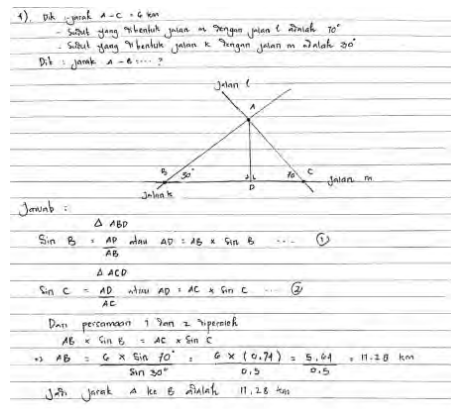 1) Dik : jarak A - C = 6 km
- Sudut yang dibentuk jalan m dengan jalan l adalah 70°
- Sudut yang dibentuk jalan k dengan jalan m adalah 30°
Dit : jarak A - B .... ?
Jalan l
A
B 30° 70 C Jalan m
D
Jalan k
Jawab :
Δ ABD
Sin B = AD/AB atau AD = AB x Sin B .... ①
Δ ACD
Sin C = AD/AC atau AD = AC x Sin C .... ②
Dari persamaan 1 dan 2 diperoleh
AB x Sin B = AC x Sin C
=> AB = 6 x Sin 70° / Sin 30° = 6 x (0,94) / 0,5 = 5,64 / 0,5 = 11.28 km
Jadi jarak A ke B adalah 11,28 km